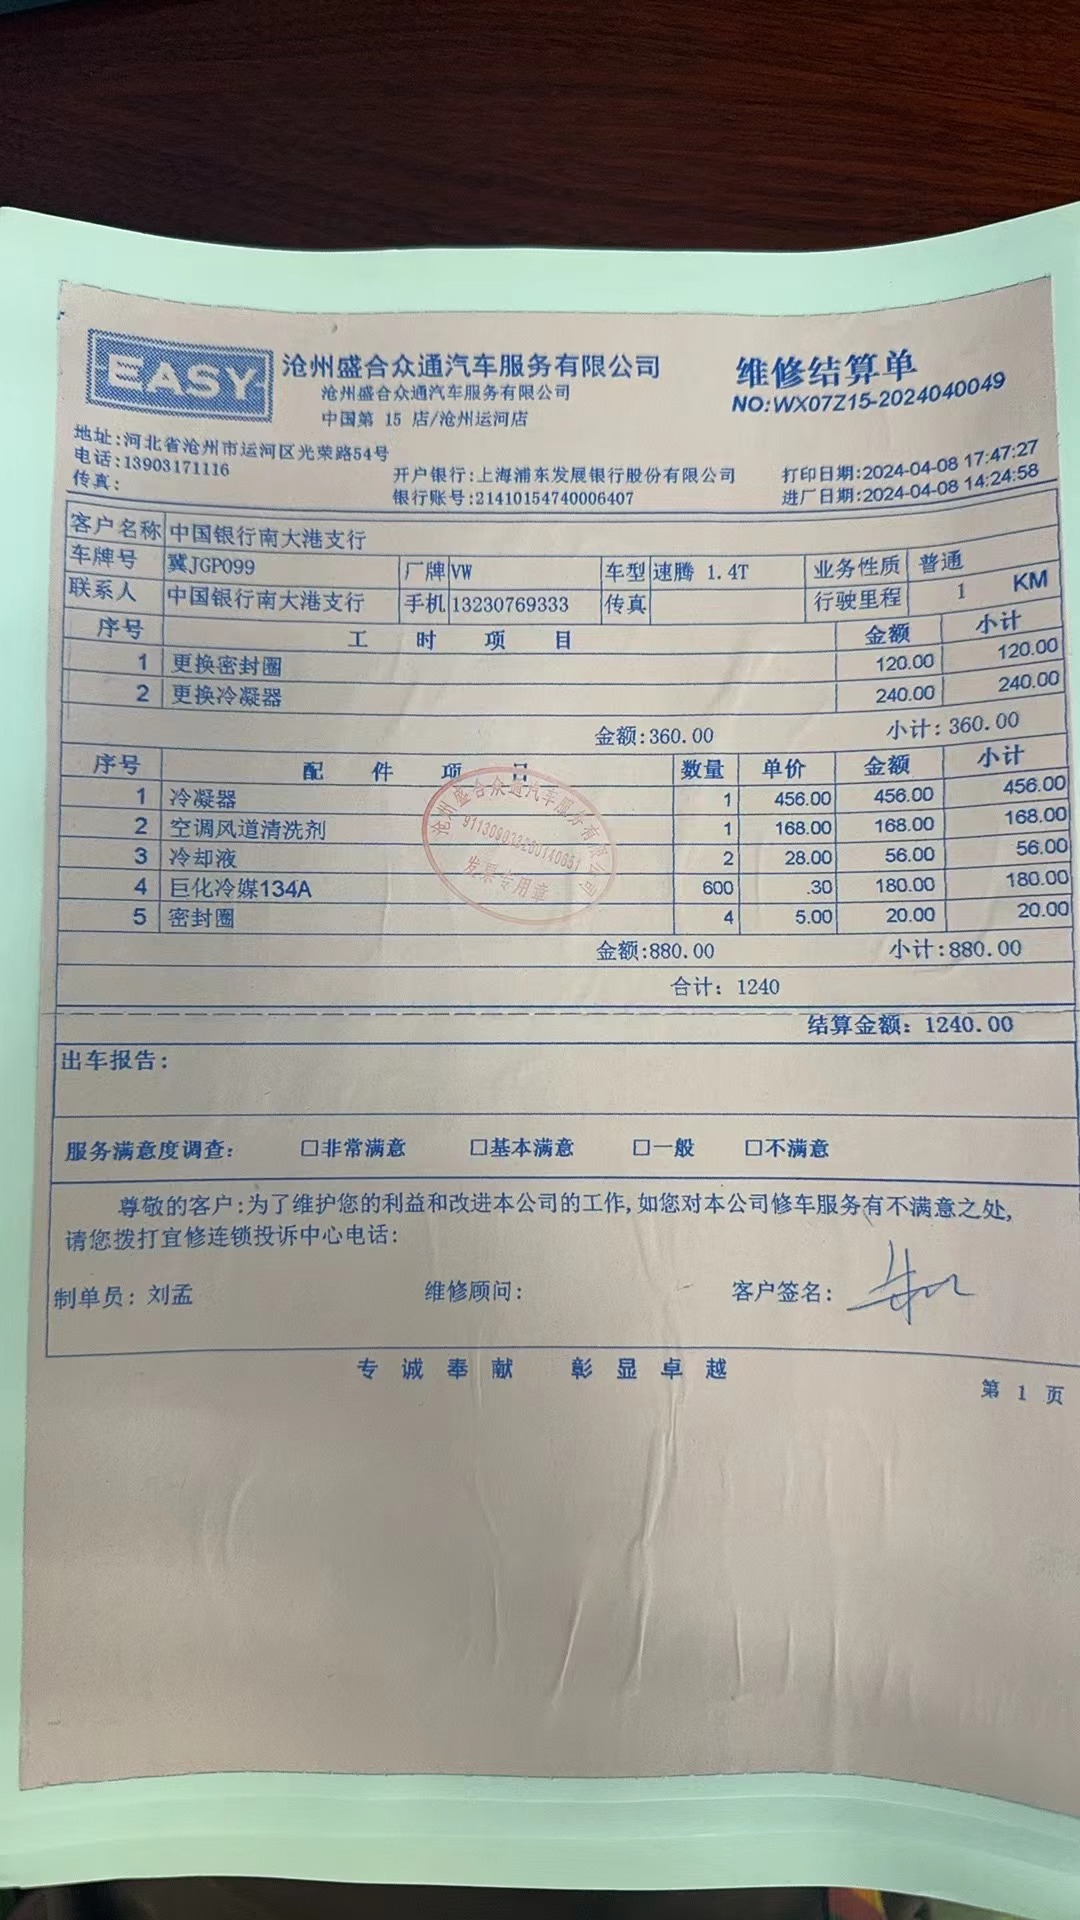 EASY
沧州盛合众通汽车服务有限公司
沧州盛合众通汽车服务有限公司
中国第 15 店/沧州运河店
维修结算单
NO:WX07Z15-2024040049
地址:河北省沧州市运河区光荣路54号
电话:13903171116
传真:
开户银行:上海浦东发展银行股份有限公司
银行账号:21410154740006407
打印日期:2024-04-08 17:47:27
进厂日期:2024-04-08 14:24:58
客户名称 中国银行南大港支行
车牌号 冀JGP099 厂牌 VW 车型 速腾 1.4T 业务性质 普通
联系人 中国银行南大港支行 手机 13230769333 传真 行驶里程 1 KM
序号 工时项目 金额 小计
1 更换密封圈 120.00 120.00
2 更换冷凝器 240.00 240.00
金额:360.00 小计:360.00
序号 配件项目 数量 单价 金额 小计
1 冷凝器 1 456.00 456.00 456.00
2 空调风道清洗剂 1 168.00 168.00 168.00
3 冷却液 2 28.00 56.00 56.00
4 巨化冷媒134A 600 .30 180.00 180.00
5 密封圈 4 5.00 20.00 20.00
沧州盛合众通汽车服务有限公司
发票专用章
金额:880.00 小计:880.00
合计: 1240
结算金额: 1240.00
出车报告:
服务满意度调查: □非常满意 □基本满意 □一般 □不满意
尊敬的客户:为了维护您的利益和改进本公司的工作,如您对本公司修车服务有不满意之处,
请您拨打宜修连锁投诉中心电话:
制单员: 刘孟 维修顾问: 客户签名:
专诚奉献 彰显卓越
第 1 页